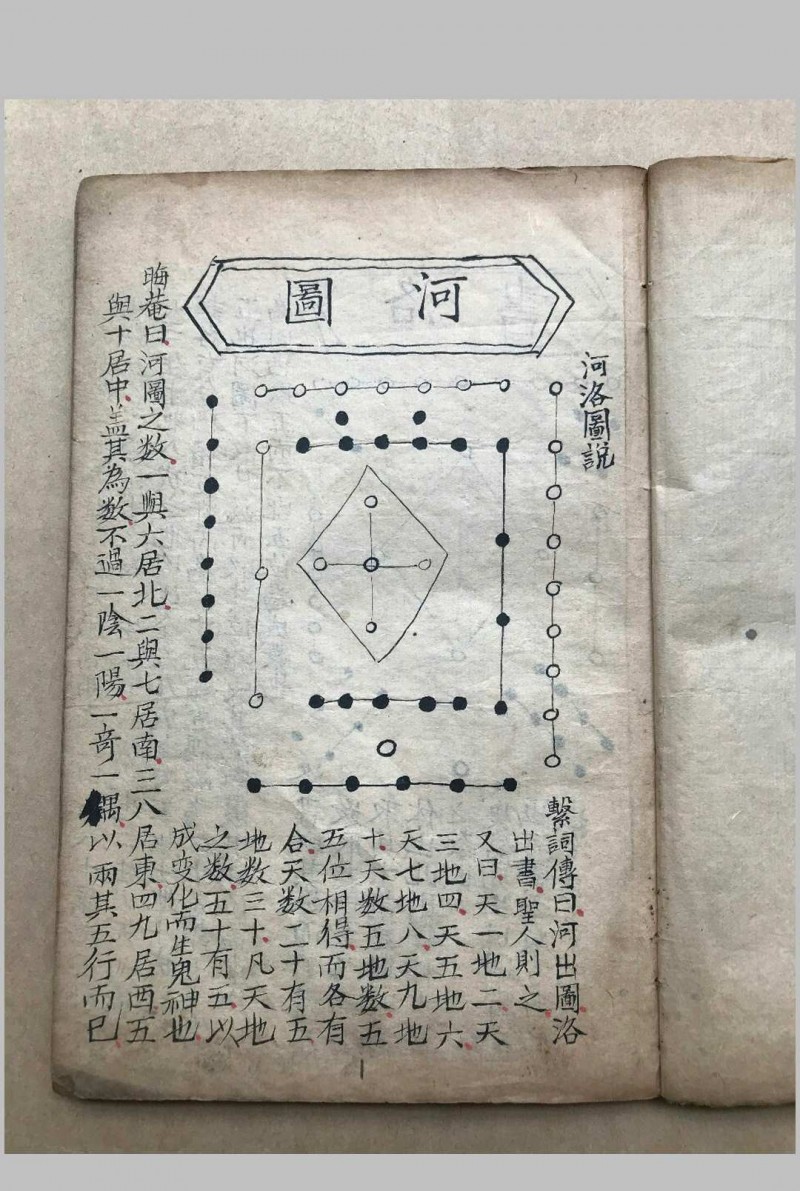 河洛圖說
河圖
繫詞傳曰河出圖洛
出書聖人則之
又曰天一地二天
三地四天五地六
天七地八天九地
十天数五地数五
五位相得而各有
合天数二十有五
地数三十凡天地
之数五十有五以
成变化而生鬼神也
晦菴曰河圖之数一與六居北二與七居南三八居東四九居西五
與十居中盖其為数不過一陰一陽一奇一偶以兩其五行而已